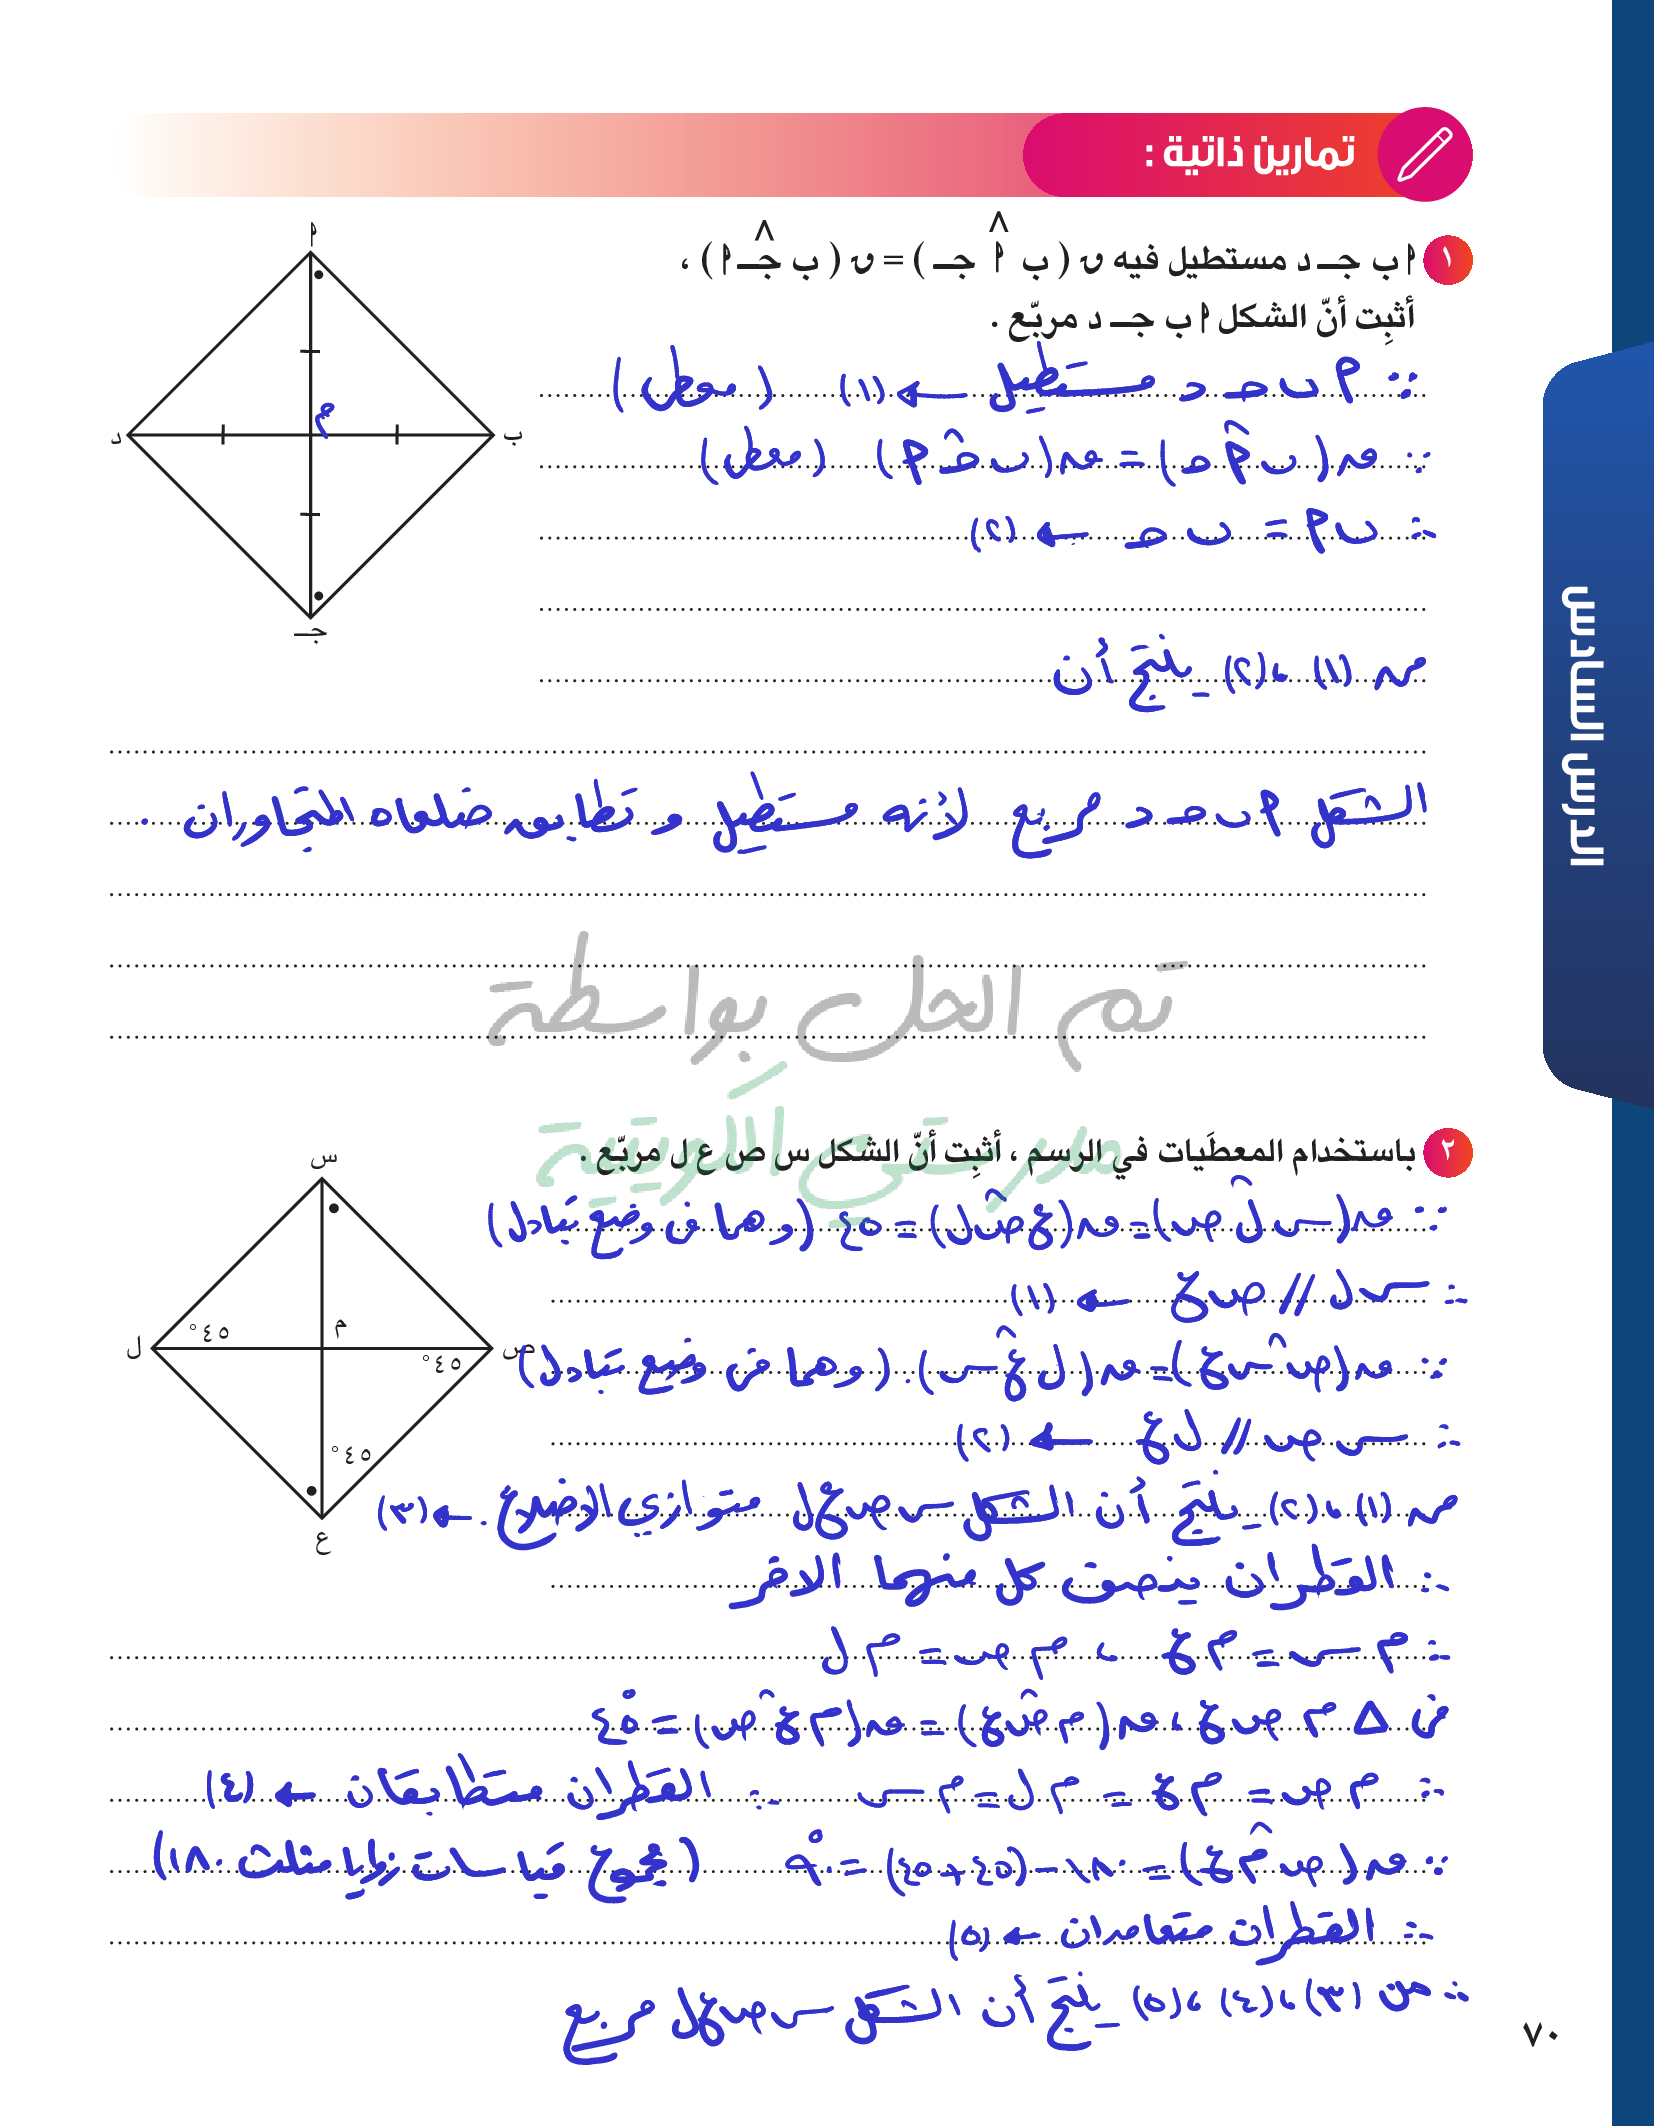 تمارين ذاتية :
١ أ ب جـ د مستطيل فيه ق ( ب أ^ جـ ) = ق ( ب جـ^ أ ) ،
أثبِت أنّ الشكل أ ب جـ د مربّع .
أ
ب
جـ
د
م
∵ أ ب حـ د مستطيل ← (١) (معطى)
∵ ق(ب أ^ حـ) = ق(ب حـ^ أ) (معطى)
∴ ب أ = ب حـ ← (٢)
من (١) ،(٢) ينتج أن
الشكل أ ب حـ د مربع لأنه مستطيل و تطابق ضلعاه المتجاوران .
تم الحل بواسطة
مدرستي الكويتية
٢ باستخدام المعطَيات في الرسم ، أثبِت أنّ الشكل س ص ع ل مربّع .
س
ص
ع
ل
م
٤٥°
٤٥°
٤٥°
∵ ق(س ل^ ص) = ق(ع ص^ ل) = ٤٥ (وهما في وضع تبادل)
∴ س ل // ص ع ← (١)
∵ ق(ص س^ ع) = ق(ل ع^ س) . (وهما في وضع تبادل)
∴ س ص // ل ع ← (٢)
من (١) ،(٢) ينتج أن الشكل س ص ع ل متوازي الاضلاع . ← (٣)
∴ القطران ينصف كل منهما الاخر
∴ م س = م ع ، م ص = م ل
في △ م ص ع ، ق(م ص^ ع) = ق(م ع^ ص) = ٤٥°
∴ م ص = م ع = م ل = م س ∴ القطران متطابقان ← (٤)
∵ ق(ص م^ ع) = ١٨٠ – (٤٥ + ٤٥) = ٩٠° (مجموع قياسات زوايا مثلث ١٨٠)
∴ القطران متعامدان ← (٥)
∴ من (٣) ،(٤) ،(٥) ينتج أن الشكل س ص ع ل مربع
الدرس السادس
٧٠